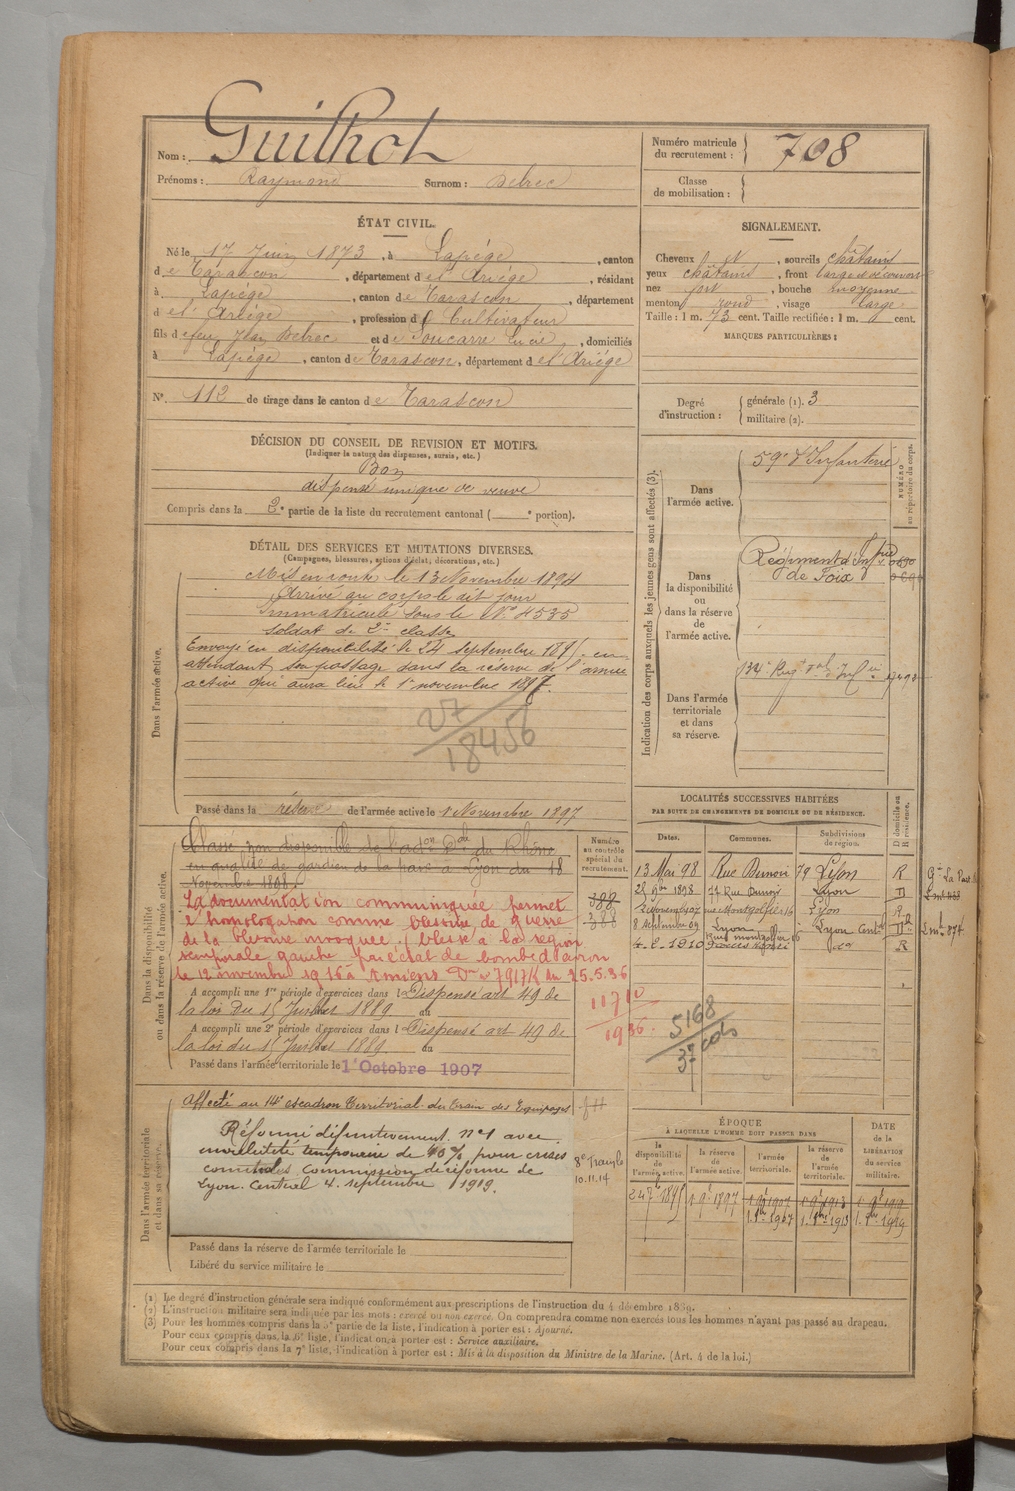 Nom : Guilhot
Prénoms : Raymond Surnom : Debrec
Numéro matricule du recrutement : 708
Classe de mobilisation :
ÉTAT CIVIL.
Né le 17 Juin 1873, à Lapège, canton
de Tarascon, département de l'Ariége, résidant
à Lapège, canton de Tarascon, département
d e l'Ariége, profession de Cultivateur
fils de feu Jean Debrec et de Soucarre Lucie, domiciliés
à Lapège, canton de Tarascon, département de l'Ariége
N° 112 de tirage dans le canton de Tarascon
SIGNALEMENT.
Cheveux et, sourcils châtains
yeux châtains, front large et découvert
nez fort, bouche moyenne
menton rond, visage large
Taille : 1 m. 73 cent. Taille rectifiée : 1 m. cent.
MARQUES PARTICULIÈRES :
Degré d'instruction : générale (1). 3
militaire (2).
DÉCISION DU CONSEIL DE REVISION ET MOTIFS.
(Indiquer la nature des dispenses, sursis, etc.)
Bon
dispensé unique de veuve
Compris dans la 2e partie de la liste du recrutement cantonal ( e portion).
DÉTAIL DES SERVICES ET MUTATIONS DIVERSES.
(Campagnes, blessures, actions d'éclat, décorations, etc.)
Dans l'armée active.
Mis en route le 13 Novembre 1894
Arrivé au corps le dit jour
Immatriculé sous le N° 4535
soldat de 2e classe
Envoyé en disponibilité le 24 septembre 1895 en
attendant son passage dans la réserve de l'armée
active qui aura lieu le 1er novembre 1897.
27
18456
Passé dans la réserve de l'armée active le 1 Novembre 1897
Indication des corps auxquels les jeunes gens sont affectés (3).
NUMÉRO au répertoire du corps.
Dans l'armée active.
59e d'Infanterie
Dans la disponibilité ou dans la réserve de l'armée active.
Régiment d'Infrie
de Foix
Dans l'armée territoriale et dans sa réserve.
134e Rég
LOCALITÉS SUCCESSIVES HABITÉES
PAR SUITE DE CHANGEMENTS DE DOMICILE OU DE RÉSIDENCE.
Dates. Communes. Subdivisions de région. D domicile ou R résidence.
13 Mai 98 Rue Dunoir 79 Lyon R
25 9bre 1898 77 Rue Dunoir Lyon D
2 Novemb 07 rue Montgolfier 16 Lyon R
8 septembre 09 Lyon Lyon Cent D
rue montgolfier 16
4-2-1910 do R
Dans la disponibilité ou dans la réserve de l'armée active.
Numéro au contrôle spécial du recrutement.
Classé non disponible de l'adon du Rhône
en qualité de gardien de la paix à Lyon du 18
Novembre 1898.
388
388
La documentation communiquée permet
l'homologation comme blessure de guerre
de la blessure invoquée : blessé à la région
temporale gauche par éclat de bombe d'avion
le 12 novembre 1916 à Amiens Don n° 7917/K du 25.5.36
11710
1936.
5168
37 cols
A accompli une 1re période d'exercices dans l Dispensé art 49 de
la loi du 15 Juillet 1889 au
A accompli une 2e période d'exercices dans l Dispensé art 49 de
la loi du 15 Juillet 1889 au
Passé dans l'armée territoriale le 1er Octobre 1907
Dans l'armée territoriale et dans sa réserve.
Affecté au 14e escadron Territorial du Train des Equipages
Réformé définitivement n° 1 avec
invalidité temporaire de 40 % pour crises
comitiales Commission de réforme de
Lyon. Central 4. septembre 1919.
10.11.14
Passé dans la réserve de l'armée territoriale le
Libéré du service militaire le
ÉPOQUE
A LAQUELLE L'HOMME DOIT PASSER DANS
la disponibilité de l'armée active. la réserve de l'armée active. l'armée territoriale. la réserve de l'armée territoriale.
DATE de la LIBÉRATION du service militaire.
24 7bre 1895 1 9bre 1897 1 9bre 1907 1 9bre 1913 1 9bre 1919
1. 8bre 1907 1. 8bre 1913 1. 8bre 1919
(1) Le degré d'instruction générale sera indiqué conformément aux prescriptions de l'instruction du 4 décembre 1889.
(2) L'instruction militaire sera indiquée par les mots : exercé ou non exercé. On comprendra comme non exercés tous les hommes n'ayant pas passé au drapeau.
(3) Pour les hommes compris dans la 5e partie de la liste, l'indication à porter est : Ajourné.
Pour ceux compris dans la 6e liste, l'indication à porter est : Service auxiliaire.
Pour ceux compris dans la 7e liste, l'indication à porter est : Mis à la disposition du Ministre de la Marine. (Art. 4 de la loi.)